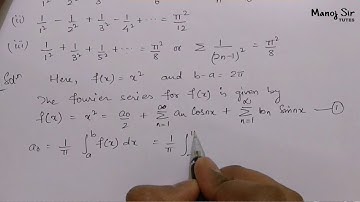 Manoj Sir
TUTES
(ii) 1/1² - 1/2² + 1/3² - 1/4² + ⋯ = π²/12
(iii) 1/1² + 1/3² + 1/5² + ⋯ = π²/8 or Σ 1/(2n-1)² = π²/8
Solⁿ Here, f(x) = x² and b-a = 2π
The fourier series for f(x) is given by
f(x) = x² = a₀/2 + Σ_{n=1}^{∞} aₙ Cosnx + Σ_{n=1}^{∞} bₙ Sinnx — ①
a₀ = 1/π ∫_a^b f(x) dx = 1/π ∫